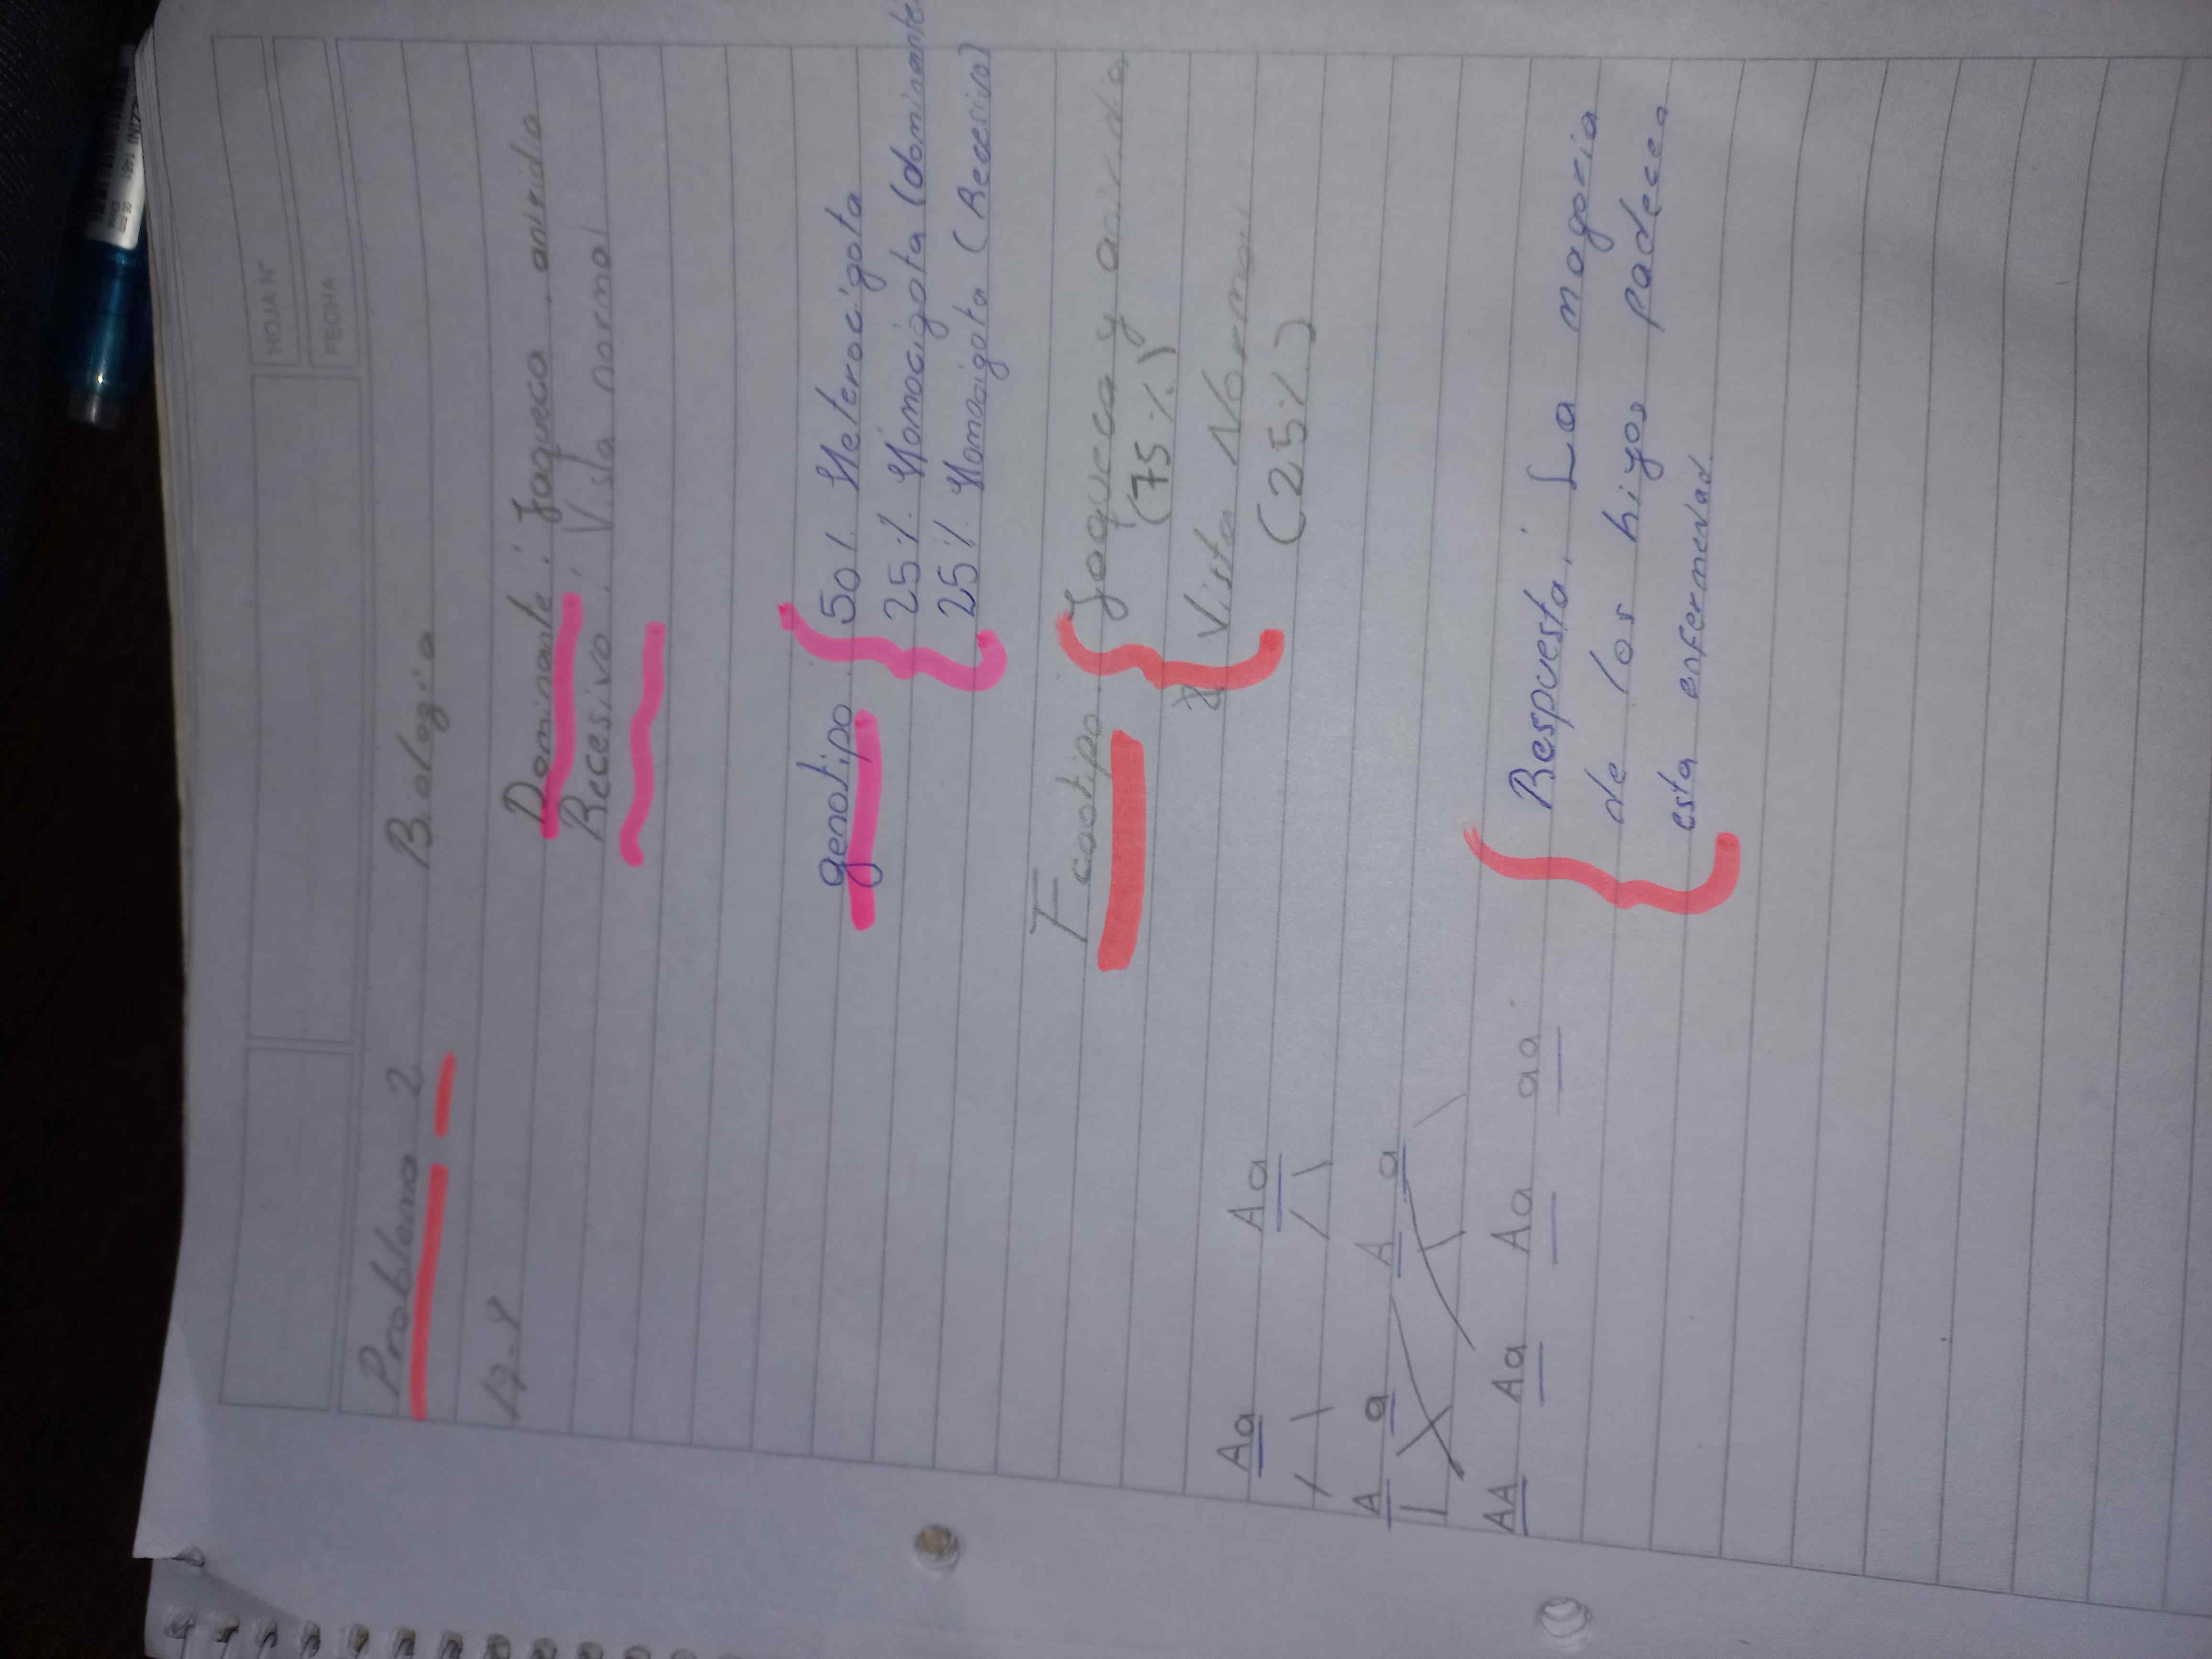 HOJA N°
FECHA
Problema 2 Biologia
17-8
Dominante: Jaqueca, aniridia
Recesivo: Vista normal
genotipo 50% Heterocigota
25% Homocigota (dominante
25% Homocigota (Recesivo)
Fenotipo Jaqueca y aniridia
(75%)
Vista Normal
(25%)
Aa Aa
A a A a
AA Aa Aa aa
Respuesta: La magoria
de los higos padecen
esta enfermedad.